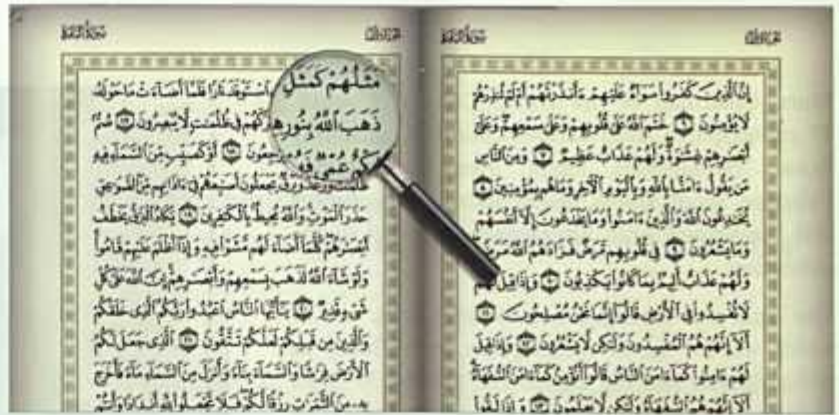 الجزء الأول
سورة البقرة
إِنَّ ٱلَّذِينَ كَفَرُوا۟ سَوَآءٌ عَلَيْهِمْ ءَأَنذَرْتَهُمْ أَمْ لَمْ تُنذِرْهُمْ
لَا يُؤْمِنُونَ ٦ خَتَمَ ٱللَّهُ عَلَىٰ قُلُوبِهِمْ وَعَلَىٰ سَمْعِهِمْ وَعَلَىٰٓ
أَبْصَٰرِهِمْ غِشَٰوَةٌ وَلَهُمْ عَذَابٌ عَظِيمٌ ٧ وَمِنَ ٱلنَّاسِ
مَن يَقُولُ ءَامَنَّا بِٱللَّهِ وَبِٱلْيَوْمِ ٱلْءَاخِرِ وَمَا هُم بِمُؤْمِنِينَ ٨
يُخَٰدِعُونَ ٱللَّهَ وَٱلَّذِينَ ءَامَنُوا۟ وَمَا يَخْدَعُونَ إِلَّآ أَنفُسَهُمْ
وَمَا يَشْعُرُونَ ٩ فِى قُلُوبِهِم مَّرَضٌ فَزَادَهُمُ ٱللَّهُ مَرَضًا
وَلَهُمْ عَذَابٌ أَلِيمٌۢ بِمَا كَانُوا۟ يَكْذِبُونَ ١٠ وَإِذَا قِيلَ لَهُمْ
لَا تُفْسِدُوا۟ فِى ٱلْأَرْضِ قَالُوٓا۟ إِنَّمَا نَحْنُ مُصْلِحُونَ ١١
أَلَآ إِنَّهُمْ هُمُ ٱلْمُفْسِدُونَ وَلَٰكِن لَّا يَشْعُرُونَ ١٢ وَإِذَا قِيلَ
لَهُمْ ءَامِنُوا۟ كَمَآ ءَامَنَ ٱلنَّاسُ قَالُوٓا۟ أَنُؤْمِنُ كَمَآ ءَامَنَ ٱلسُّفَهَآءُ
أَلَآ إِنَّهُمْ هُمُ ٱلسُّفَهَآءُ وَلَٰكِن لَّا يَعْلَمُونَ ١٣ وَإِذَا لَقُوا۟
الجزء الأول
سورة البقرة
مَثَلُهُمْ كَمَثَلِ ٱسْتَوْقَدَ نَارًا فَلَمَّآ أَضَآءَتْ مَا حَوْلَهُۥ
ذَهَبَ ٱللَّهُ بِنُورِهِ رَكَهُمْ فِى ظُلُمَٰتٍ لَّا يُبْصِرُونَ ١٧ صُمٌّۢ
بُكْمٌ عُمْىٌ فَهُمْ يَرْجِعُونَ ١٨ أَوْ كَصَيِّبٍ مِّنَ ٱلسَّمَآءِ فِيهِ
ظُلُمَٰتٌ وَرَعْدٌ وَبَرْقٌ يَجْعَلُونَ أَصَٰبِعَهُمْ فِىٓ ءَاذَانِهِم مِّنَ ٱلصَّوَٰعِقِ
حَذَرَ ٱلْمَوْتِ وَٱللَّهُ مُحِيطٌۢ بِٱلْكَٰفِرِينَ ١٩ يَكَادُ ٱلْبَرْقُ يَخْطَفُ
أَبْصَٰرَهُمْ كُلَّمَآ أَضَآءَ لَهُم مَّشَوْا۟ فِيهِ وَإِذَآ أَظْلَمَ عَلَيْهِمْ قَامُوا۟
وَلَوْ شَآءَ ٱللَّهُ لَذَهَبَ بِسَمْعِهِمْ وَأَبْصَٰرِهِمْ إِنَّ ٱللَّهَ عَلَىٰ كُلِّ
شَىْءٍ قَدِيرٌ ٢٠ يَٰٓأَيُّهَا ٱلنَّاسُ ٱعْبُدُوا۟ رَبَّكُمُ ٱلَّذِى خَلَقَكُمْ
وَٱلَّذِينَ مِن قَبْلِكُمْ لَعَلَّكُمْ تَتَّقُونَ ٢١ ٱلَّذِى جَعَلَ لَكُمُ
ٱلْأَرْضَ فِرَٰشًا وَٱلسَّمَآءَ بِنَآءً وَأَنزَلَ مِنَ ٱلسَّمَآءِ مَآءً فَأَخْرَجَ
بِهِۦ مِنَ ٱلثَّمَرَٰتِ رِزْقًا لَّكُمْ فَلَا تَجْعَلُوا۟ لِلَّهِ أَندَادًا وَأَنتُمْ